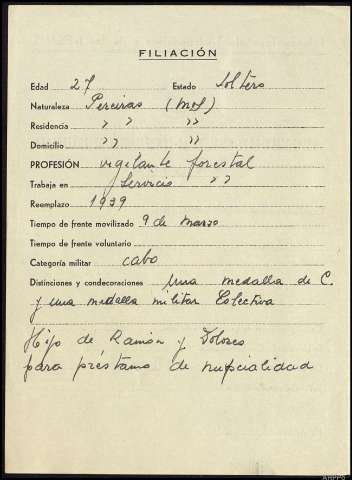 FILIACIÓN
Edad 27 Estado Soltero
Naturaleza Pereiras (Mos)
Residencia " " "
Domicilio " " "
PROFESIÓN vigilante forestal
Trabaja en Servicio " "
Reemplazo 1939
Tiempo de frente movilizado 9 de marzo
Tiempo de frente voluntario
Categoría militar cabo
Distinciones y condecoraciones Una medalla de C.
y una medalla militar Colectiva
Hijo de Ramón y Dolores
para préstamo de nupcialidad
AHPPO